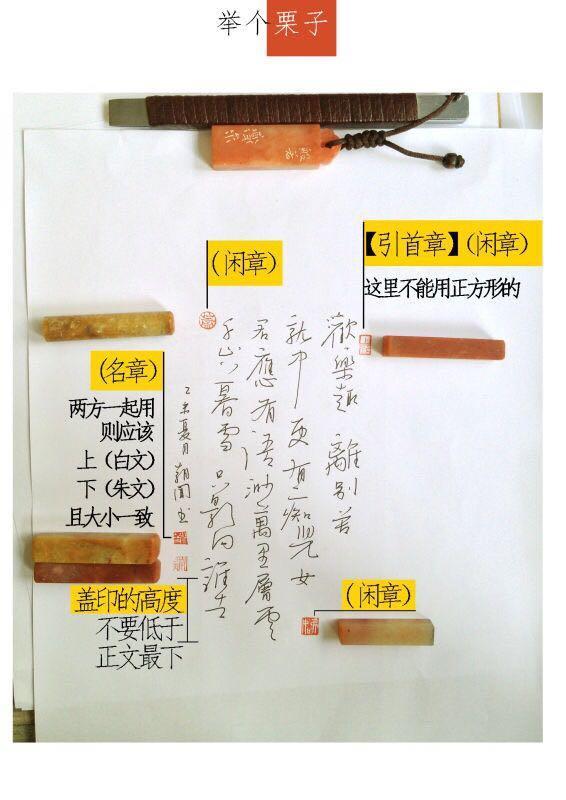 举个栗子
【引首章】（闲章）
这里不能用正方形的
（闲章）
（名章）
两方一起用
则应该
上（白文）
下（朱文）
且大小一致
盖印的高度
不要低于
正文最下
（闲章）
歡樂趣 離別苦
就中更有痴兒女
君應有語渺萬里層雲
千山暮雪只影向誰去
乙未夏月